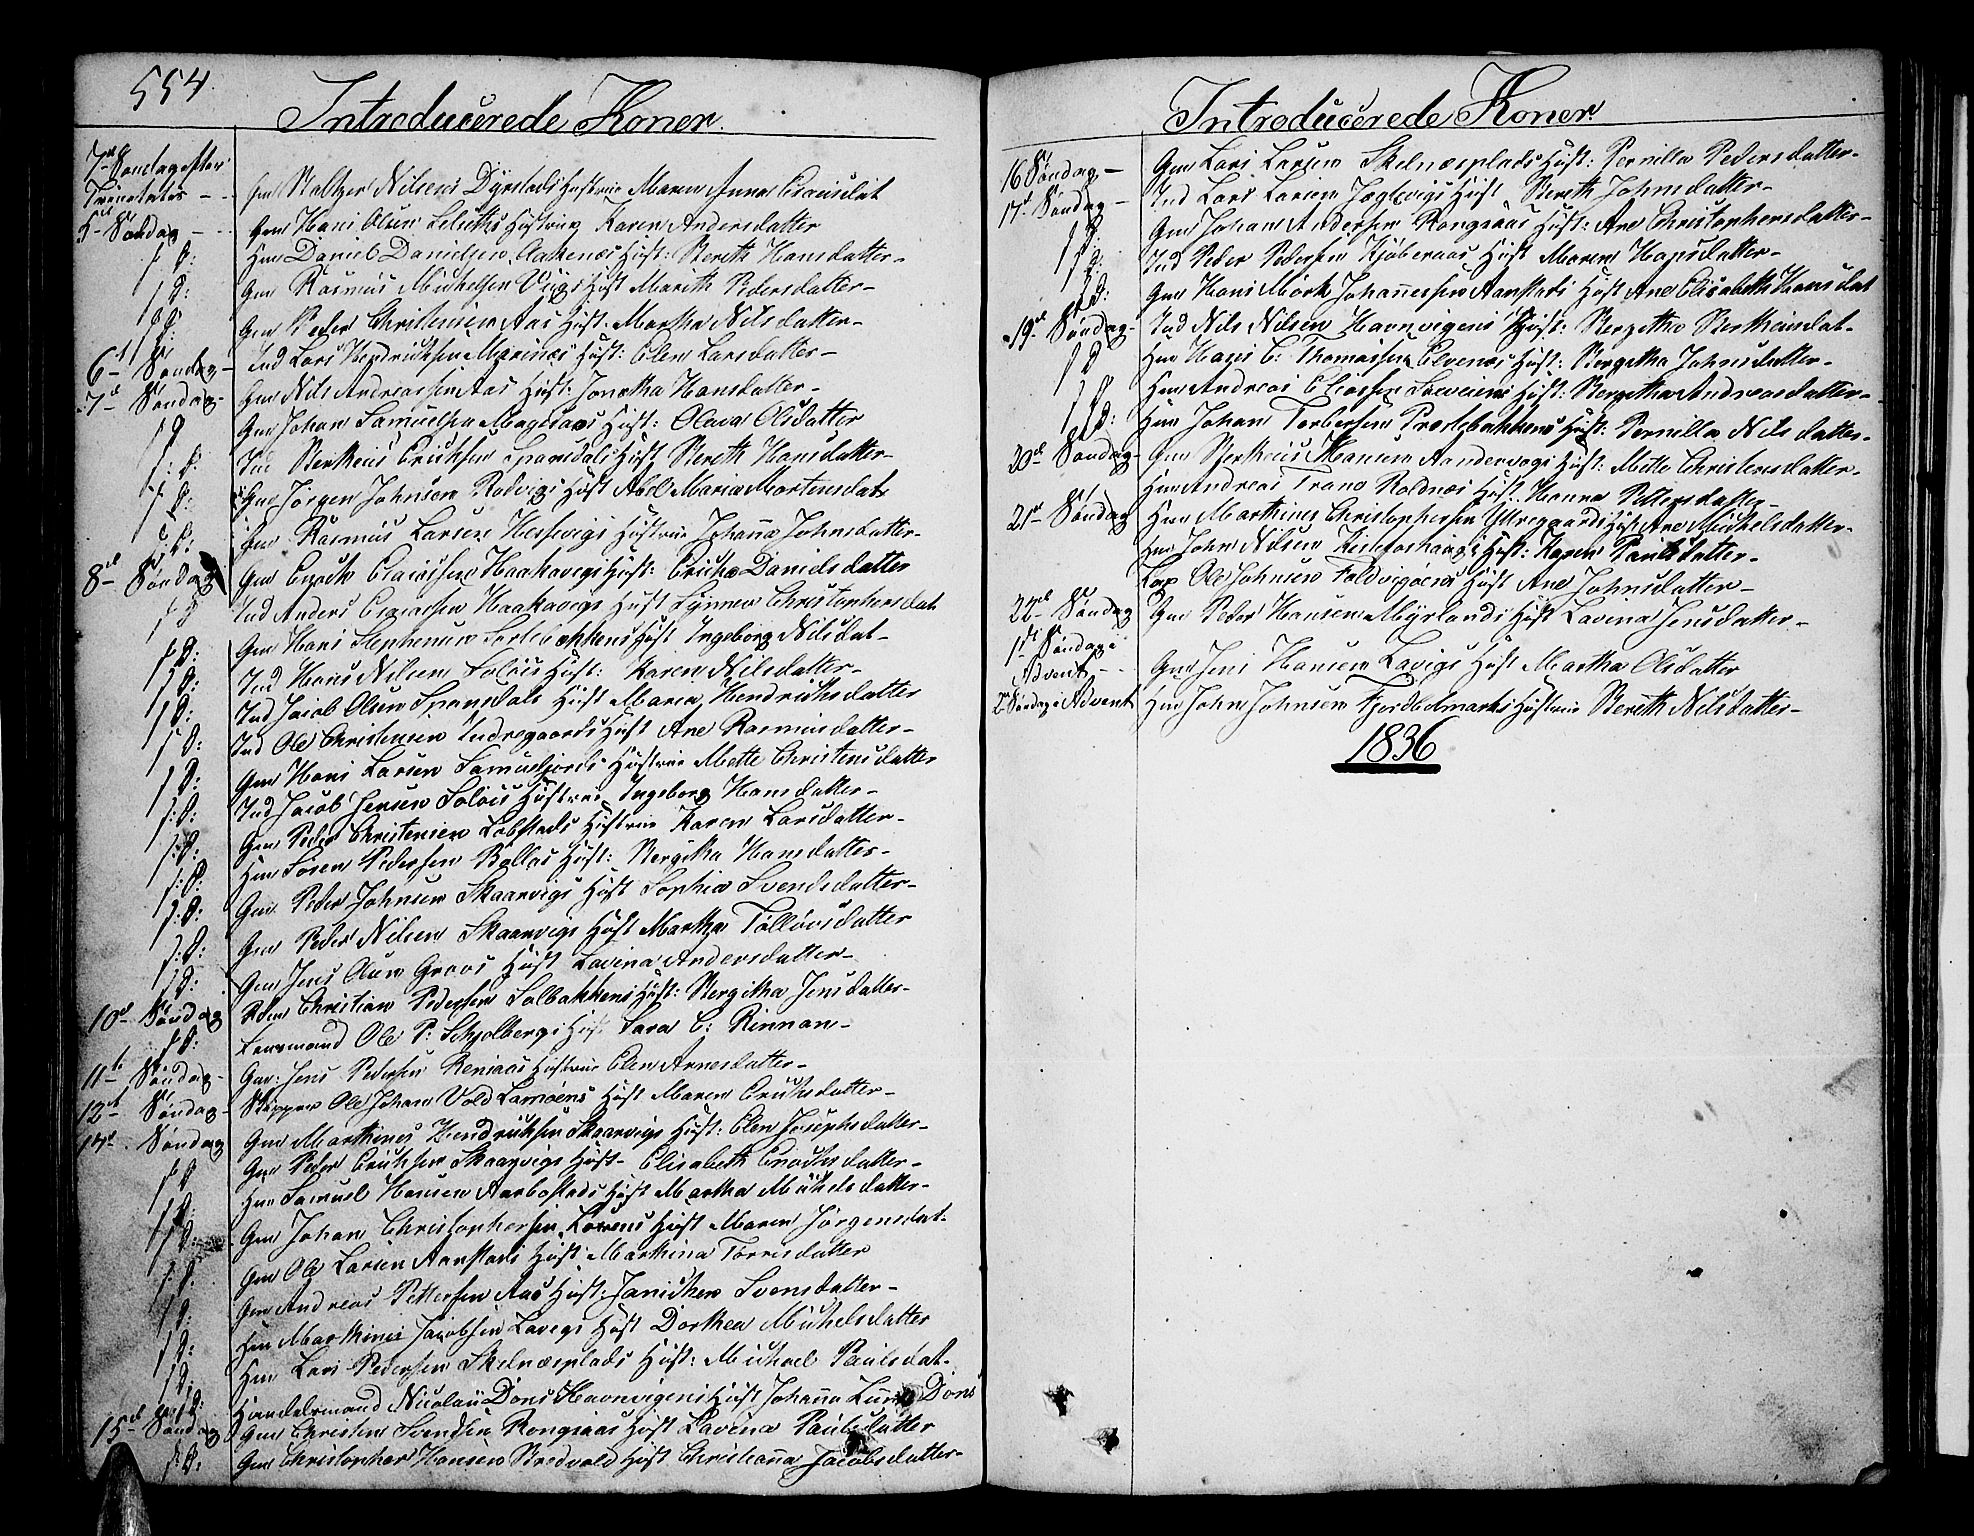 554.
Introducerede Koner.
7de Søndag efter
Trinitatis -- Gm Baltzer Nilsens Dyrstads Hustrue Maren Anna Esaiasdat
5te Søndag -- Gm Hans Olsen Hustrue Karen Andersdatter
s: D: Hm Daniel Danielsen Aakenes Hust: Bereth Hansdatter-
s D: Gm Rasmus Michelsen Viigs Hust Mareth Pedersdatter-
s D: Gm Peder Christensen Aas Hust: Martha Nilsdatter-
6te Søndag - Ind Lars Hendriksen Marinæs Hust: Elen Larsdatter-
7de Søndag- Gm Nils Andreassen Aas Hust: Jonetha Hansdatter-
s D Gm Johan Samuelsen Hust: Olava Olsdatter
s: D: Ind Berheus Eriksen Spansdals Hust Bereth Hansdatter-
s: D: Gm Jørgen Johnsen Rodvigs Hust Abel Maria Martinsdat
s: D: Hm Rasmus Larsen Hustrue Johanna Johnsdatter-
8de Søndag Gm Enoch Esaiassen Haakavigs Hust: Ericka Danielsdatter
s D Ind Anders Esaiassen Haakavigs Hust Synnev Christophersdat
s D: Gm Hans Stephensen Sortebakkens Hust Ingeborg Nilsdat-
s D: Ind Hans Nilsen Soløis Hust: Karen Nilsdatter-
s D: Ind Jacob Olsen Spansdals Hust Maren Hendrichsdatter
s D: Ind Ole Christensen Indregaards Hust Ane Rasmusdatter-
s D: Gm Hans Larsen Hustrue Mette Christensdatter
s: D: Ind Jacob Jensen Soløis Hustrue Ingeborg Hansdatter-
s: D: Gm Peder Christensen Lobstads Hustrue Karen Larsdatter-
s: D: Hm Søren Pedersen Bollas Hust: Bergitha Hansdatter-
s: D: Gm Peder Johnsen Skaarvigs Hust Sophia Svendsdatter-
s: D: Gm Peder Nilsen Skaarvigs Hust Martha Tølløvsdatter
s D: Gm Jens Olsen Graves Hust Lavina Andersdatter-
10de Søndag Christian Pedersen Solbakkens Hust: Bergitha Jensdatter-
s D: Lensmand Ole P: Schjelbergs Hust Sara C: Rinnan-
11te Søndag- Gm: Jens Pedersen Hustrue Elen Arnesdatter-
12te Søndag- Skipper Ole Johan Vold Lamoens Hust Maren Erichsdatter-
14de Søndag Gm Marthines Hendriksen Skaarvigs Hust: Elen Josephsdatter-
s D Gm Peder Eriksen Skaarvigs Hust- Elisabeth Enochsdatter-
s D: Hm Samuel Hansen Aarbostads Hust Martha Michelsdatter-
s D: Gm Johan Christophersen Hust Maren Jørgensdat-
s: D: Gm Ole Larsen Aanstads Hust Marthina Torrisdatter
s D: Gm Andreas Pettersen Aas Hust: Janichen Svensdatter-
s D: Hm Marthines Jacobsen Lavigs Hust Dorthea Michelsdatter
s D: Hm Lars Pedersen Skelnæsplads Hust: Michael Paulsdat-
s D: Handelsmand Nicolai Dons Havnvigens Hust Johanna Lund Dons
15de Søndag Gm Christen Svendsen Rongsaas Hust Lavina Paulsdatter
s: D: Gm Christopher Hansen Bredvold Hust Christianna Jacobsdatter-
Introducerede Koner.
16 Søndag - Gm Lars Larsen Skelnæsplads Hust: Pernilla Pedersdatter-
17de Søndag - Ind Lars Larsen Hust Bereth Johnsdatter-
s D: Gm Johan Andersen Rongsaas Hust: Ane Christophersdatter-
s D: Ind Peder Pedersen Kjøberaas Hust Maren Hansdatter-
s D: Gm Hans Mørk Johannessen Aanstads Hust Ane Elisabeth Hansdat
19de Søndag- Ind Nils Nilsen Havnvigens Hust: Bergitha Bertheusdat-
s D Hm Hans C: Thomassen Elvenes Hust: Bergitha Johnsdatter-
s D: Hm Andreas Eliassen Hust: Bergitha Andreasdatter-
s D: Hm Johan Torbersen Prestebakkens Hust: Pernilla Nilsdatter-
20de Søndag- Gm Berheus Hansen Hust: Mette Christensdatter-
Hm Andreas Trane Roldnæs Hust: Hanna Pettersdatter-
21de Søndag Hm Marthines Christophersen Yttregaards Hust Ane Michelsdatter-
Hm John Nilsen Hust: Karen Paulsdatter-
Lap Ole Johnsen Foldvigøiens Hust Ane Johnsdatter-
22de Søndag Gm Peder Hansen Myrlands Hust Lavina Jensdatter-
1ste Søndag i
Advent -- Gm Jens Hansen Lavigs Hust Martha Olsdatter
2 Søndag i Advent Hm John Johnsen Hustrue Bereth Nilsdatter-
1836